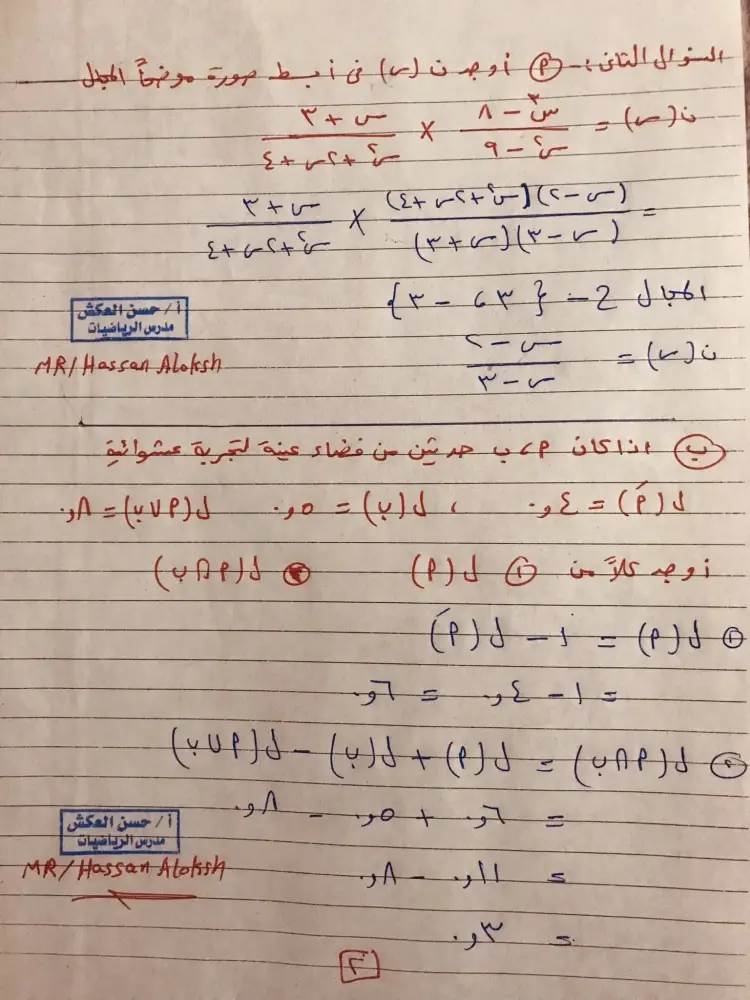 السؤال الثانى :- (أ) أوجد ن (س) فى أبسط صورة موضحاً المجال
ن(س) = (س³ - ٨)/(س² - ٩) × (س + ٣)/(س² + ٢س + ٤)
= (س - ٢)(س² + ٢س + ٤)/(س - ٣)(س + ٣) × (س + ٣)/(س² + ٢س + ٤)
المجال ح - {٣ ، - ٣}
أ / حسن العكش
مدرس الرياضيات
MR/Hassan Aloksh
ن(س) = (س - ٢)/(س - ٣)
(ب) اذا كان أ ، ب حدثين من فضاء عينة لتجربة عشوائية
ل(أَ) = ٤و. ، ل(ب) = ٥و. ل(أ∪ب) = ٨و.
أوجد كلاً من ① ل(أ) ② ل(أ∩ب)
① ل(أ) = ١ - ل(أَ)
= ١ - ٤و. = ٦و.
② ل(أ∩ب) = ل(أ) + ل(ب) - ل(أ∪ب)
= ٦و. + ٥و. - ٨و.
= ١١و. - ٨و.
= ٣و.
أ / حسن العكش
مدرس الرياضيات
MR/Hassan Aloksh
٢